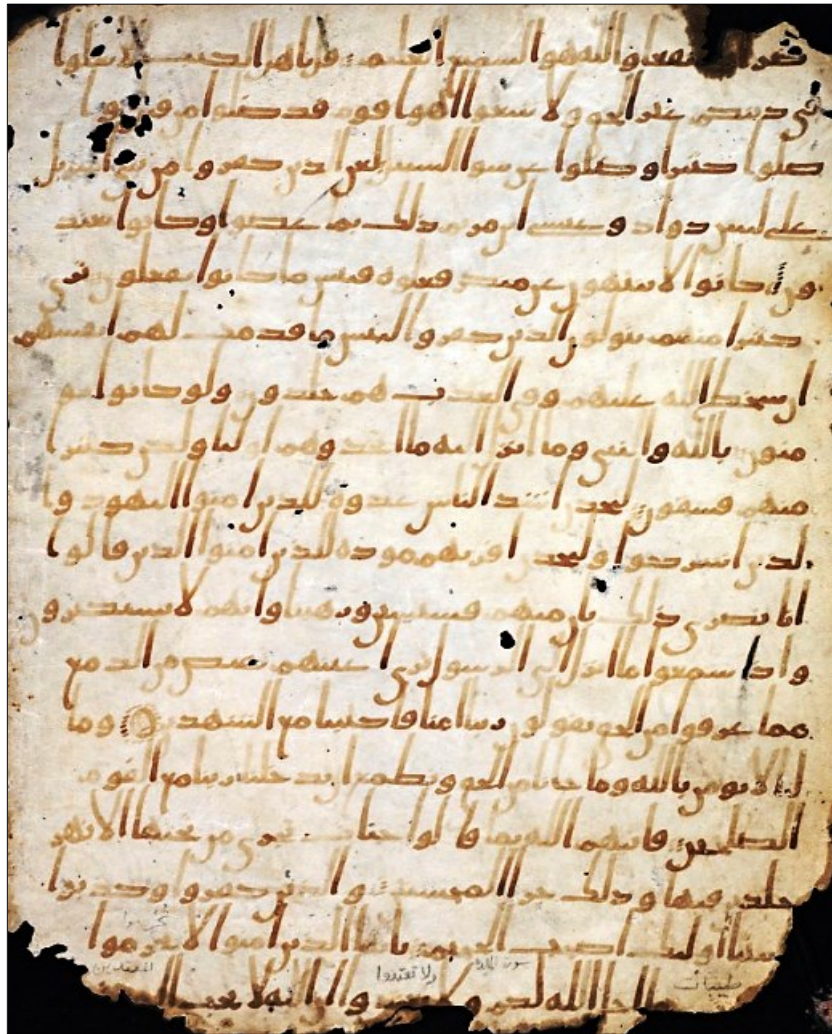 ضرا ولا نفعا والله هو السميع العليم قل ياهل الكتب لا تغلوا
في دينكم غير الحق ولا تتبعوا اهوا قوم قد ضلوا من قبل وا
ضلوا كثيرا وضلوا عن سوا السبيل لعن الذين كفروا من بني اسريل
على لسن دواد وعيسى ابن مريم ذلك بما عصوا وكانوا يعتد
ون كانوا لا يتنهون عن منكر فعلوه فبيس ما كانوا يفعلون ترى
كثيرا منهم يتولون الذين كفروا لبيس ما قدمت لهم انفسهم
ان سخط الله عليهم وفي العذب هم خلدون ولو كانوا يو
منون بالله والنبي وما انزل اليه ما اتخذوهم اوليا ولكن كثيرا
منهم فسقون لتجدن اشد الناس عدوة للذين امنوا اليهود وا
لذين اشركوا ولتجدن اقربهم مودة للذين امنوا الذين قالوا
انا نصرى ذلك بان منهم قسيسين ورهبنا وانهم لا يستكبرون
واذا سمعوا ما انزل الى الرسول ترى اعينهم تفيض من الدمع
مما عرفوا من الحق يقولون ربنا امنا فاكتبنا مع الشهدين وما
لنا لا نومن بالله وما جانا من الحق ونطمع ان يدخلنا ربنا مع القوم
الصلحين فاثبهم الله بما قالوا جنات تجري من تحتها الانهر
خلدين فيها وذلك جزا المحسنين والذين كفروا وكذبوا با
يتنا اوليك اصحب الجحيم يايها الذين امنوا لا تحرموا
طيبات ولا تعتدوا المعتدين
ما احل الله لكم ولا تعتدوا ان الله لا يحب